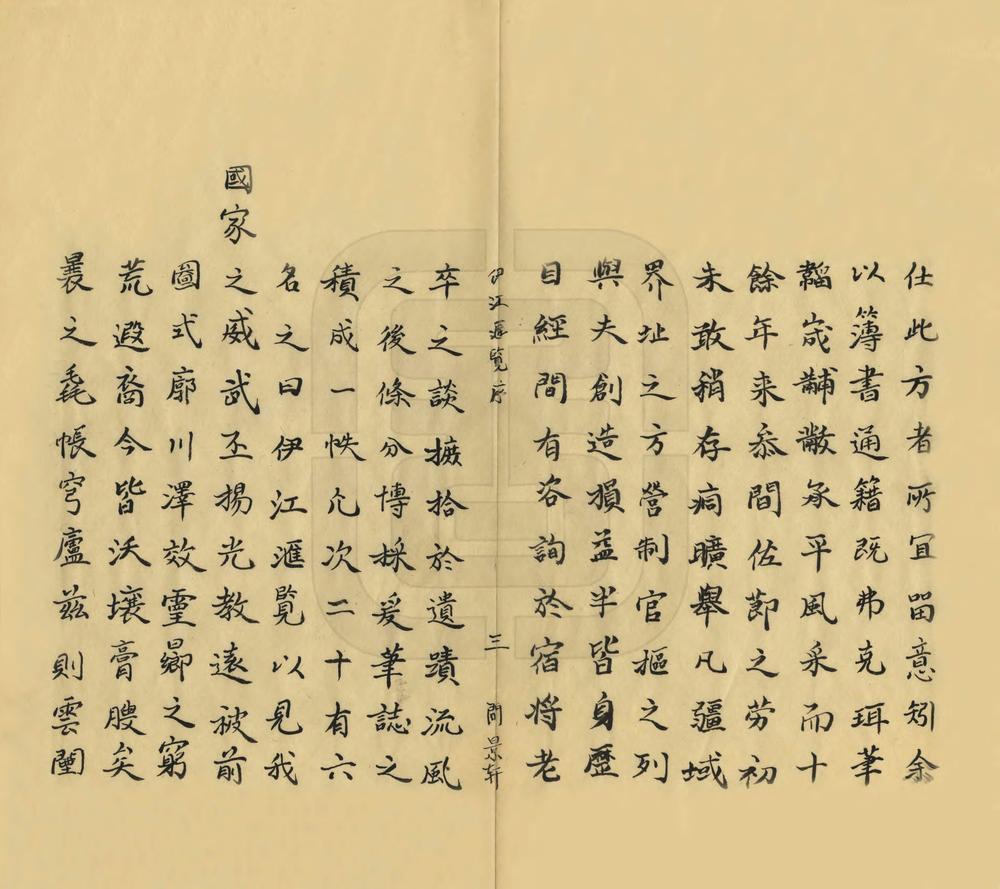 仕此方者所宜留意矧余
以簿書通籍既弗克珥筆
韜嵗黼黻承平風采而十
餘年来忝間佐郡之劳初
未敢稍存痌曠舉凡疆域
界址之方營制官樞之列
與夫創造損益半皆身歷
目經間有咨詢於宿将老
伊江滙覧序
三
問景轩
卒之談摭拾於遺蹟流風
之後條分博採爰筆誌之
積成一帙凢次二十有六
名之曰伊江滙覽以見我
國家
之威武丕揚光教遠被前
圖式廓川澤效靈鄉之窮
荒遐裔今皆沃壤膏腴矣
曩之毳帳穹廬兹則雲闉